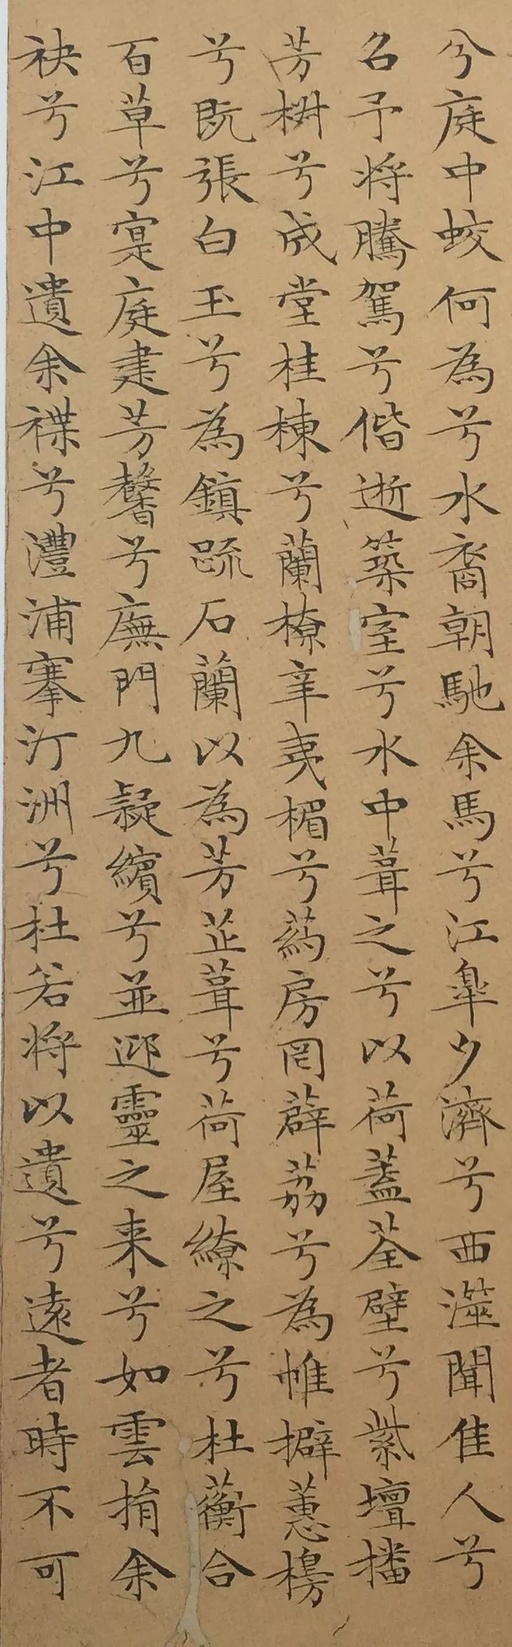 兮庭中蛟何為兮水裔朝馳余馬兮江皋夕濟兮西澨聞佳人兮
召予將騰駕兮偕逝築室兮水中葺之兮以荷蓋荃壁兮紫壇播
芳椒兮成堂桂棟兮蘭橑辛夷楣兮葯房罔薜荔兮為帷擗蕙櫋
兮既張白玉兮為鎮疏石蘭以為芳芷葺兮荷屋繚之兮杜蘅合
百草兮寔庭建芳馨兮廡門九疑繽兮並迎靈之来兮如雲捐余
袂兮江中遺余褋兮澧浦搴汀洲兮杜若將以遺兮遠者時不可